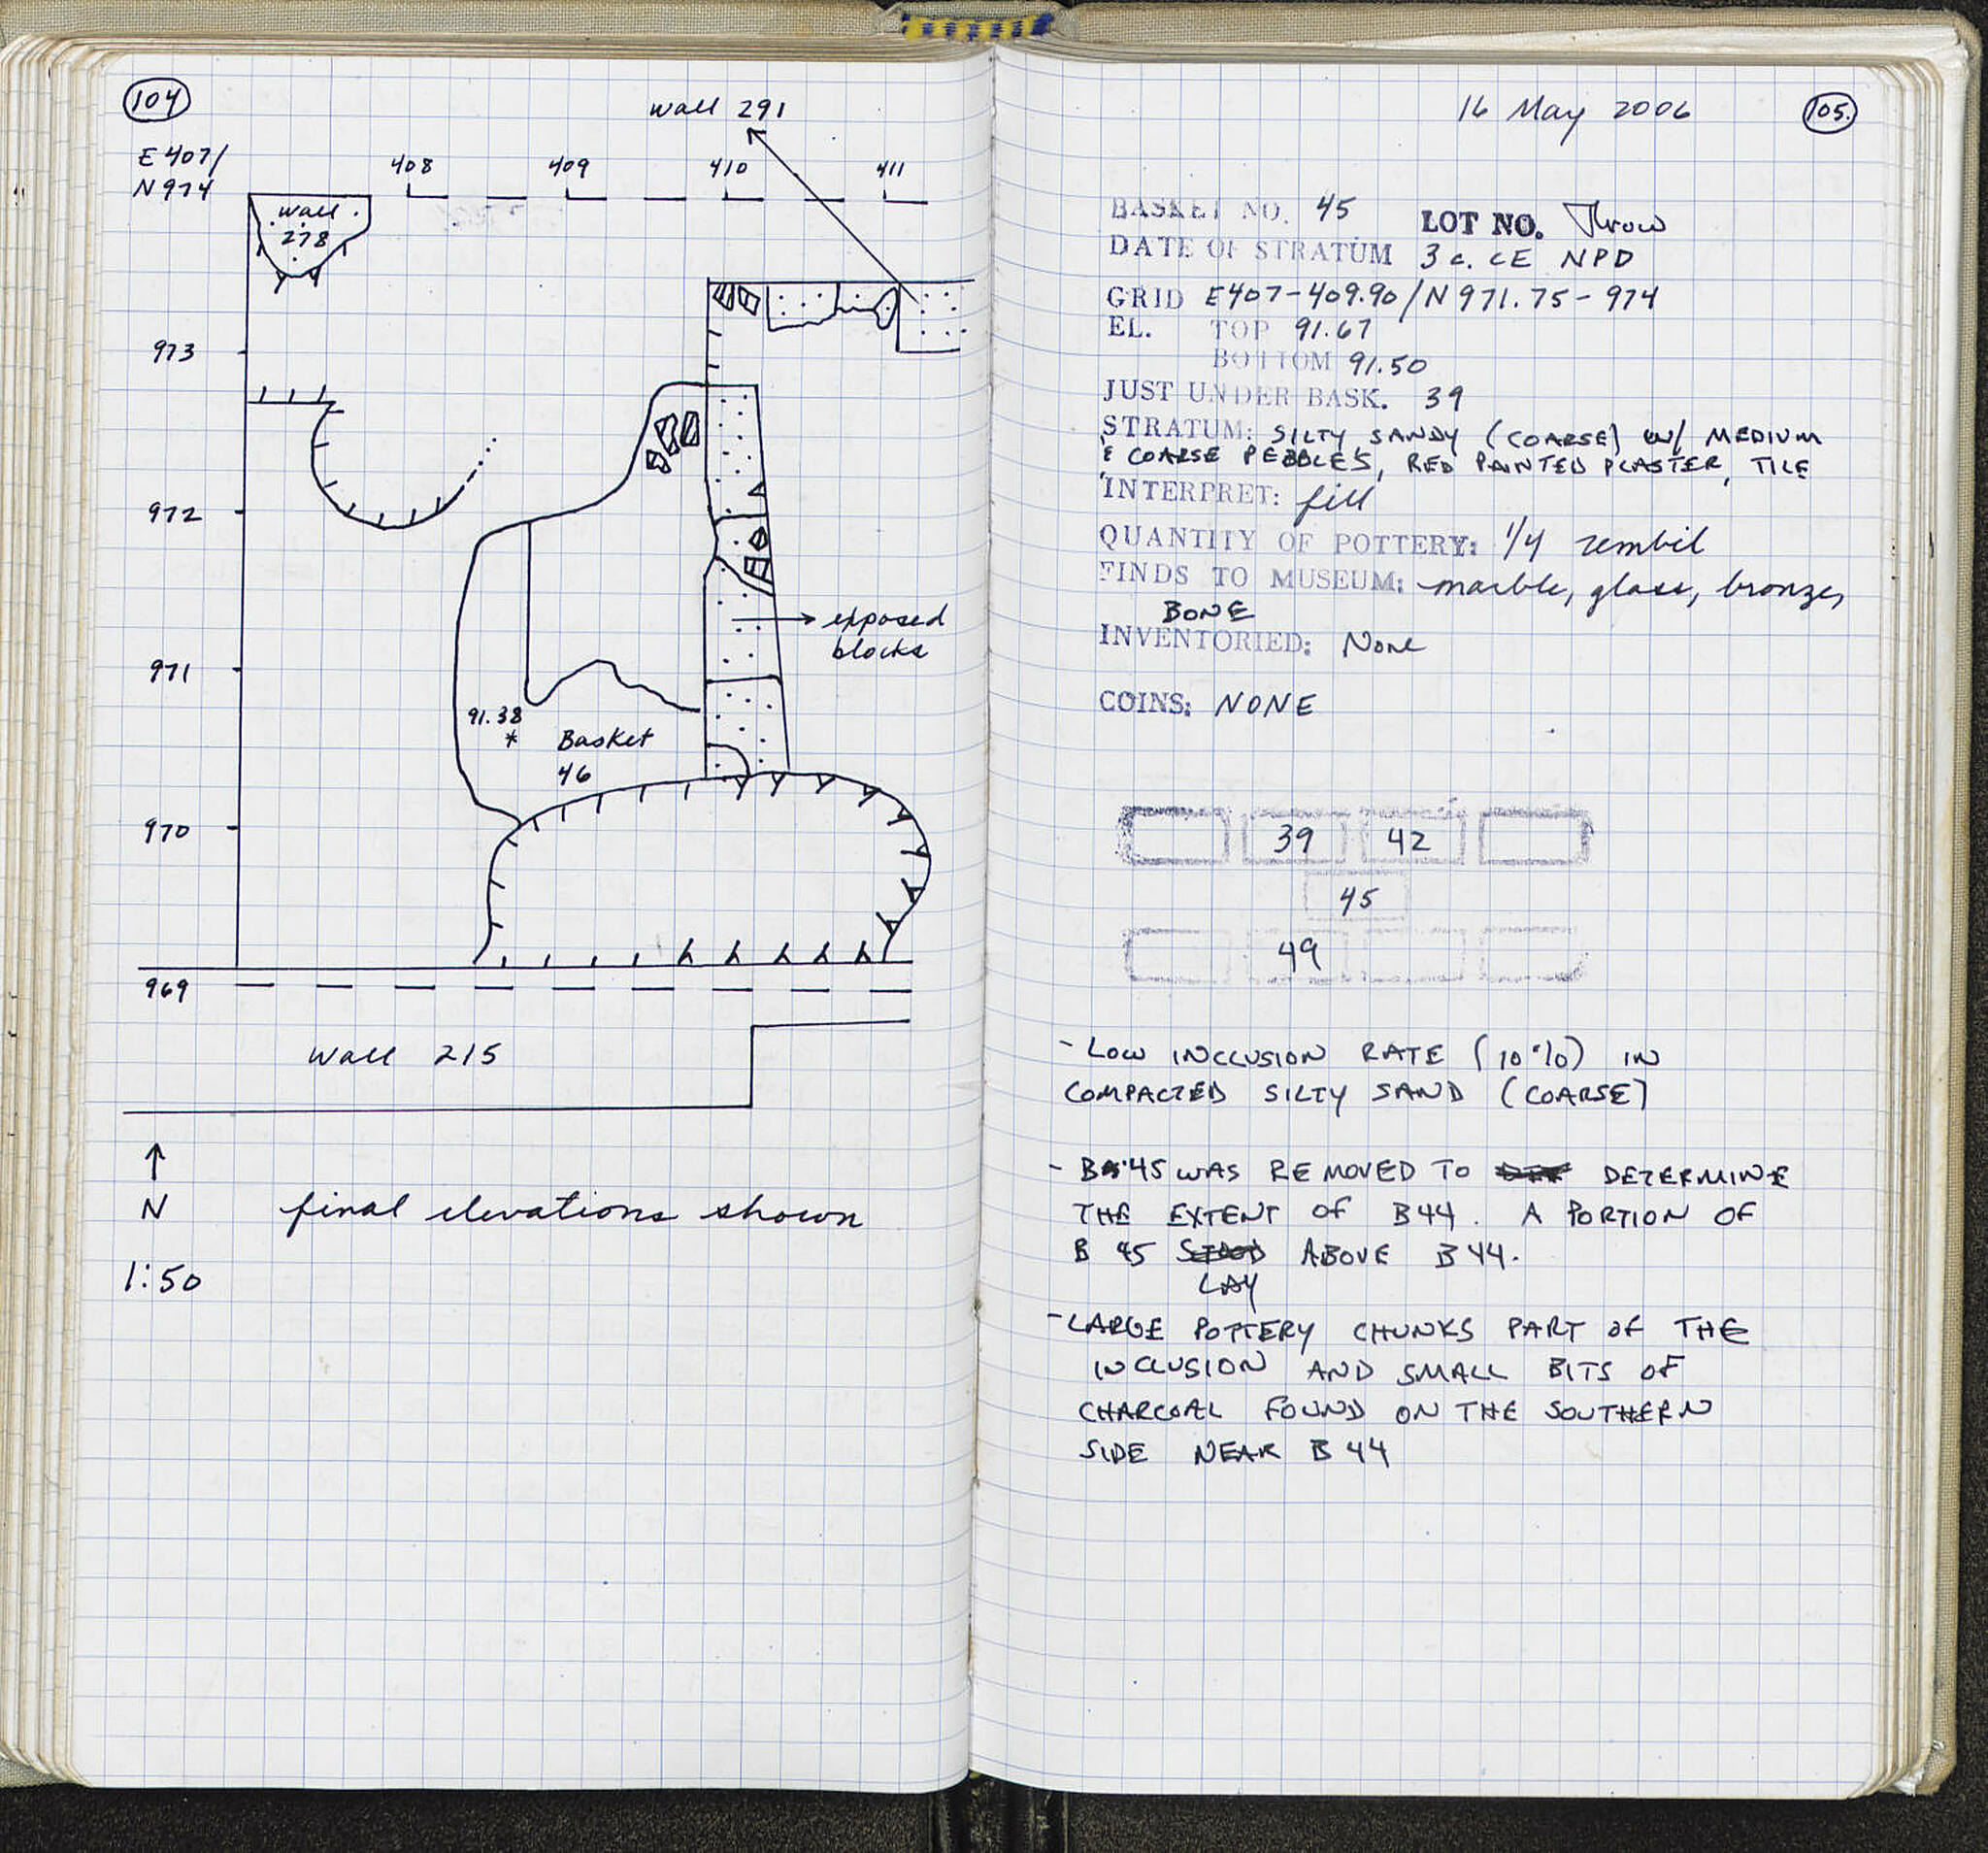 104
wall 291
E 407/
N 974
408
409
410
411
wall
278
973
972
exposed
blocks
971
91.38
*
Basket
46
970
969
wall 215
↑
N
final elevations shown
1:50
16 May 2006
105.
BASKET NO. 45 LOT NO. Throw
DATE OF STRATUM 3 c. CE NPD
GRID E407-409.90/N971.75-974
EL. TOP 91.67
BOTTOM 91.50
JUST UNDER BASK. 39
STRATUM: SILTY SANDY (COARSE) W/ MEDIUM
& COARSE PEBBLES, RED PAINTED PLASTER, TILE
INTERPRET: fill
QUANTITY OF POTTERY: 1/4 zembil
FINDS TO MUSEUM: marble, glass, bronze,
BONE
INVENTORIED: None
COINS: NONE
39 42
45
49
- LOW INCLUSION RATE (10%) IN
COMPACTED SILTY SAND (COARSE)
- B 45 WAS REMOVED TO DETERMINE
THE EXTENT OF B44. A PORTION OF
B 45 STOOD ABOVE B44.
LAY
- LARGE POTTERY CHUNKS PART OF THE
INCLUSION AND SMALL BITS OF
CHARCOAL FOUND ON THE SOUTHERN
SIDE NEAR B 44